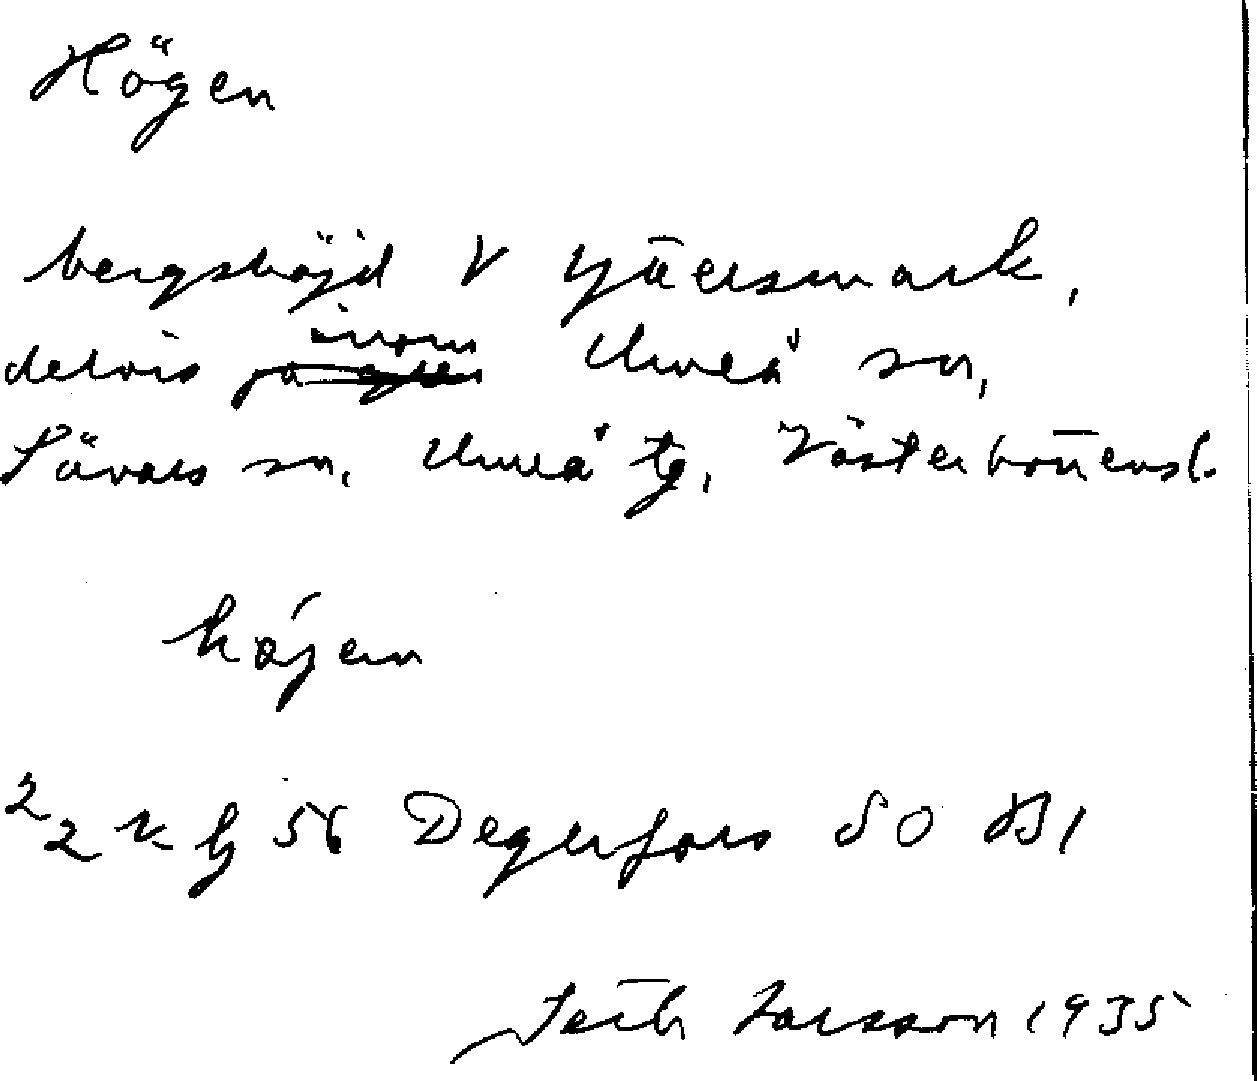 Högen
bergshöjd V
delvis inom Umeå sn,
Sävars sn, Umeå tg, Västerbottensl.
högen
2/2 56 Degerfors SO B1
Seth Larsson 1935